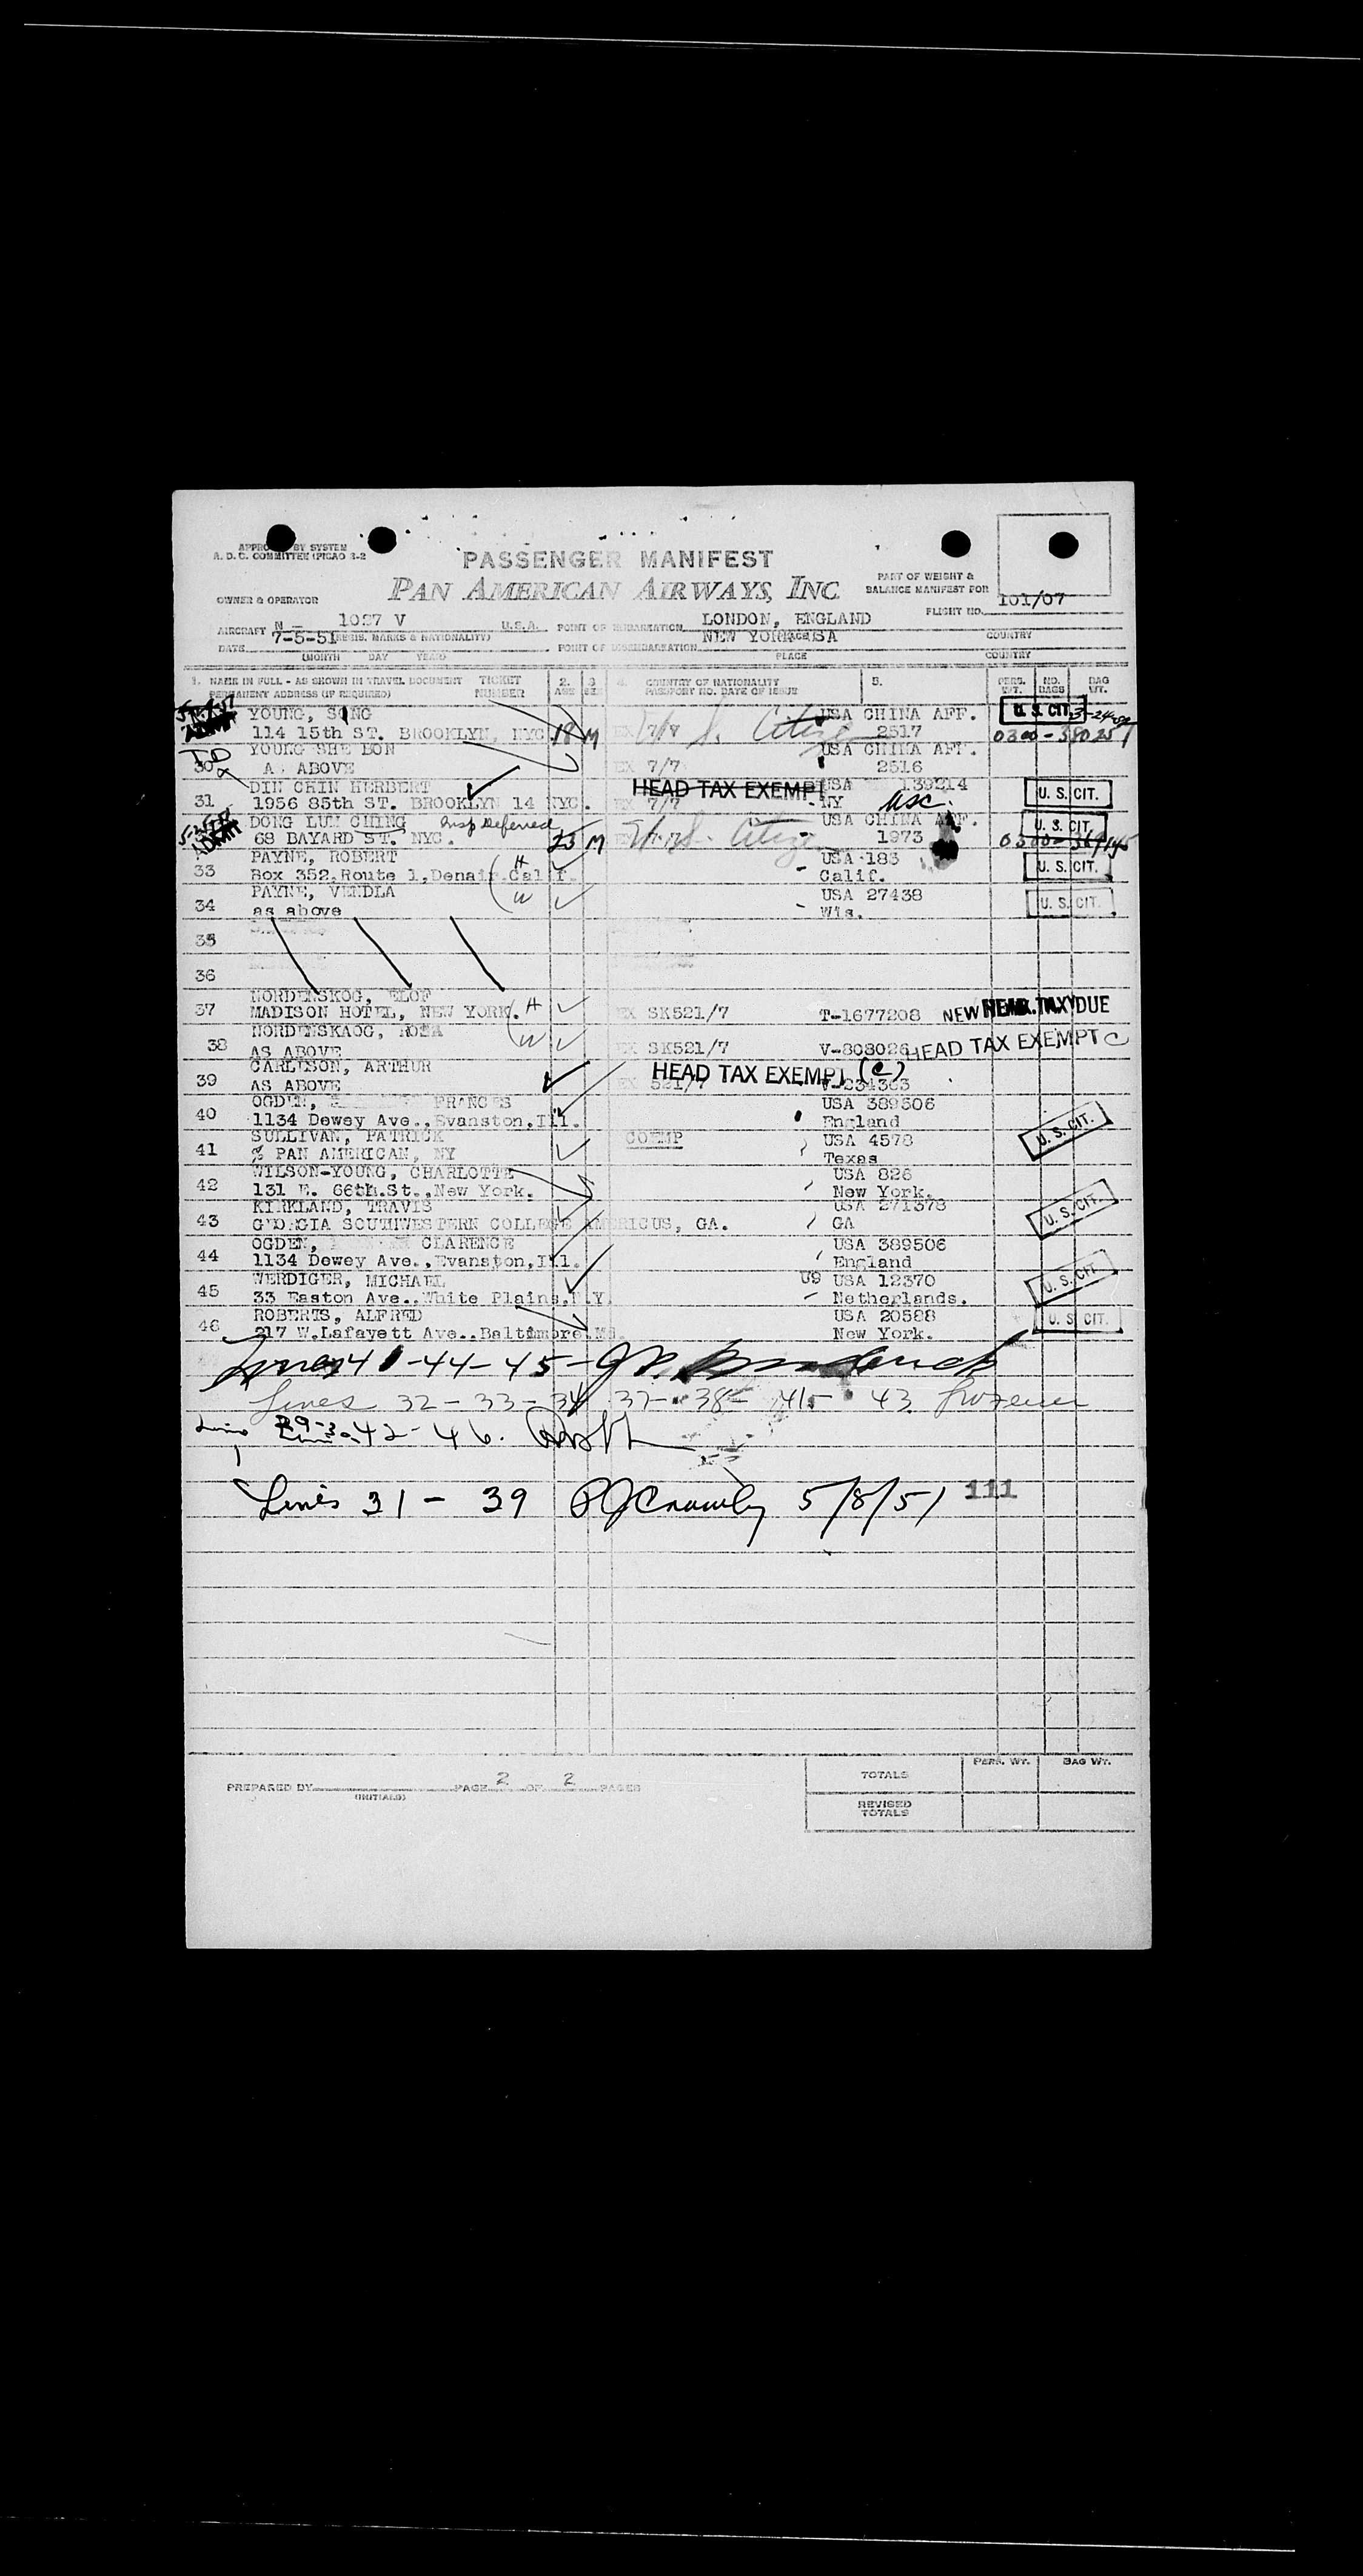 APPROVED BY SYSTEM
A. D. C. COMMITTEE (PICAO 3-2
PASSENGER MANIFEST
PAN AMERICAN AIRWAYS, INC.
PART OF WEIGHT &
BALANCE MANIFEST FOR
OWNER & OPERATOR
FLIGHT NO. 101/07
AIRCRAFT N - 1027 V U.S.A. POINT OF EMBARKATION LONDON, ENGLAND
(REGIS. MARKS & NATIONALITY) COUNTRY
DATE 7-5-51 POINT OF DISEMBARKATION NEW YORK USA
(MONTH DAY YEAR) PLACE COUNTRY
1. NAME IN FULL - AS SHOWN IN TRAVEL DOCUMENT TICKET 2. 3 4. COUNTRY OF NATIONALITY 5. PERS. NO. BAG
PERMANENT ADDRESS (IF REQUIRED) NUMBER AGE SEX PASSPORT NO. DATE OF ISSUE WT. BAGS WT.
YOUNG, SONG USA CHINA AFF. U. S. CIT.
114 15th ST. BROOKLYN, NYC 18 M EX 7/7 S. Citizen 2517
YOUNG SHE BON USA CHINA AFF.
30 AS ABOVE EX 7/7 2516
DIN CHIN HERBERT HEAD TAX EXEMPT USA 139214 U. S. CIT.
31 1956 85th ST. BROOKLYN 14 NYC. EX 7/7 NY USC.
DONG LUM CHING Insp Deferred USA CHINA AFF. U. S. CIT.
68 BAYARD ST. NYC. 25 M S. Citizen 1973
PAYNE, ROBERT H USA 183
33 Box 352,Route 1,Denair.Calif. Calif. U. S. CIT.
PAYNE, VENDLA USA 27438
34 as above W Wis. U. S. CIT.
35
36
NORDENSKOG, ELOF
37 MADISON HOTEL, NEW YORK. H EX SK521/7 T-1677208 NEW HEAD TAX DUE
NORDENSKAOG, ROSA
38 AS ABOVE W EX SK521/7 V-808026 HEAD TAX EXEMPT C
CARLTSON, ARTHUR HEAD TAX EXEMPT (C)
39 AS ABOVE EX 521/7 V-234363
OGDEN, FRANCES USA 389506
40 1134 Dewey Ave.,Evanston,Ill. England
SULLIVAN, PATRICK COEMP USA 4578 U. S. CIT.
41 % PAN AMERICAN, NY Texas
WILSON-YOUNG, CHARLOTTE USA 826
42 131 E. 66th.St.,New York. New York.
KIRKLAND, TRAVIS USA 271378
43 GEORGIA SOUTHWESTERN COLLEGE AMERICUS, GA. GA U. S. CIT.
OGDEN, CLARENCE USA 389506
44 1134 Dewey Ave.,Evanston,Ill. England
WERDIGER, MICHAEL US USA 12370 U. S. CIT.
45 33 Easton Ave..White Plains,N.Y. Netherlands.
ROBERTS, ALFRED USA 20588
46 217 W.Lafayett Ave..Baltimore,Md. New York. U. S. CIT.
Lines 40-44-45-
Lines 32-33-34 37-38- 41- 43
Lines 29-30-42-46.
Lines 31 - 39 PJ Crowley 5/8/51 111
TOTALS PERS. WT. BAG WT.
PREPARED BY PAGE 2 OF 2 PAGES
(INITIALS)
REVISED
TOTALS